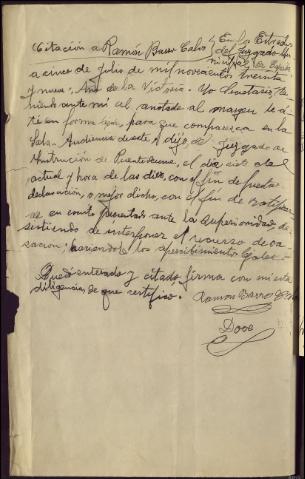 Citación a Ramón Barro Calvo En los Estrados
del Juzgado
a cinco de Julio de mil novecientos treinta
y nueve, Año de la Victoria. Yo
teniendo ante mí al anotado al margen le
en forma legal, para que comparezca en la
Sala-Audiencia de este dijo, del Juzgado de
Instrucción de Puentedeume, el día siete del
actual y hora de las diez, con el fin de prestar
declaración, o mejor dicho, con el fin de ratificar
se en escrito presentado ante la Superioridad, de
sistiendo de interponer el recurso de ca
sación; haciéndole los apercibimientos legales.
Quedó enterado y citado firma con mi esta
diligencia de que certifico. Ramon Barro